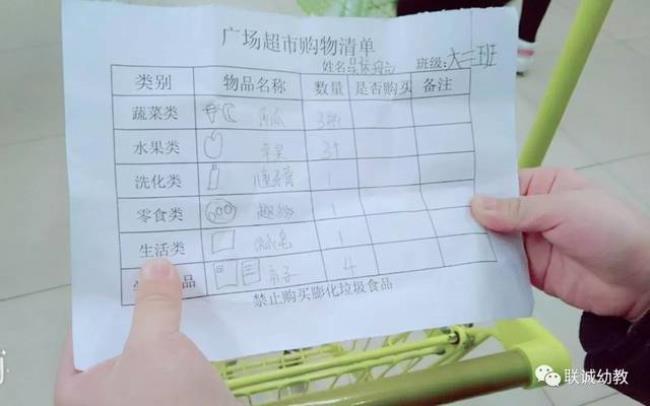 广场超市购物清单
姓名 班级:大三班
类别 物品名称 数量 是否购买 备注
蔬菜类
水果类 苹果 3个
洗化类 儿童牙膏 1
零食类 趣多多 1
生活类 1
品 本子 4
禁止购买膨化垃圾食品
联诚幼教